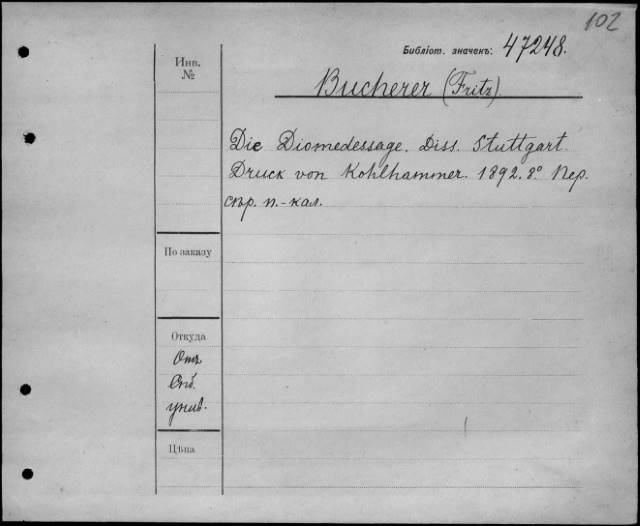 102
Библіот. значекъ: 47248.
Инв. №
Bucherer (Fritz)
Die Diomedessage. Diss. Stuttgart.
Druck von Kohlhammer. 1892. 8° Пер.
съ р. п.-кал.
По заказу
Откуда
Отъ
Спб.
унив.
Цѣна